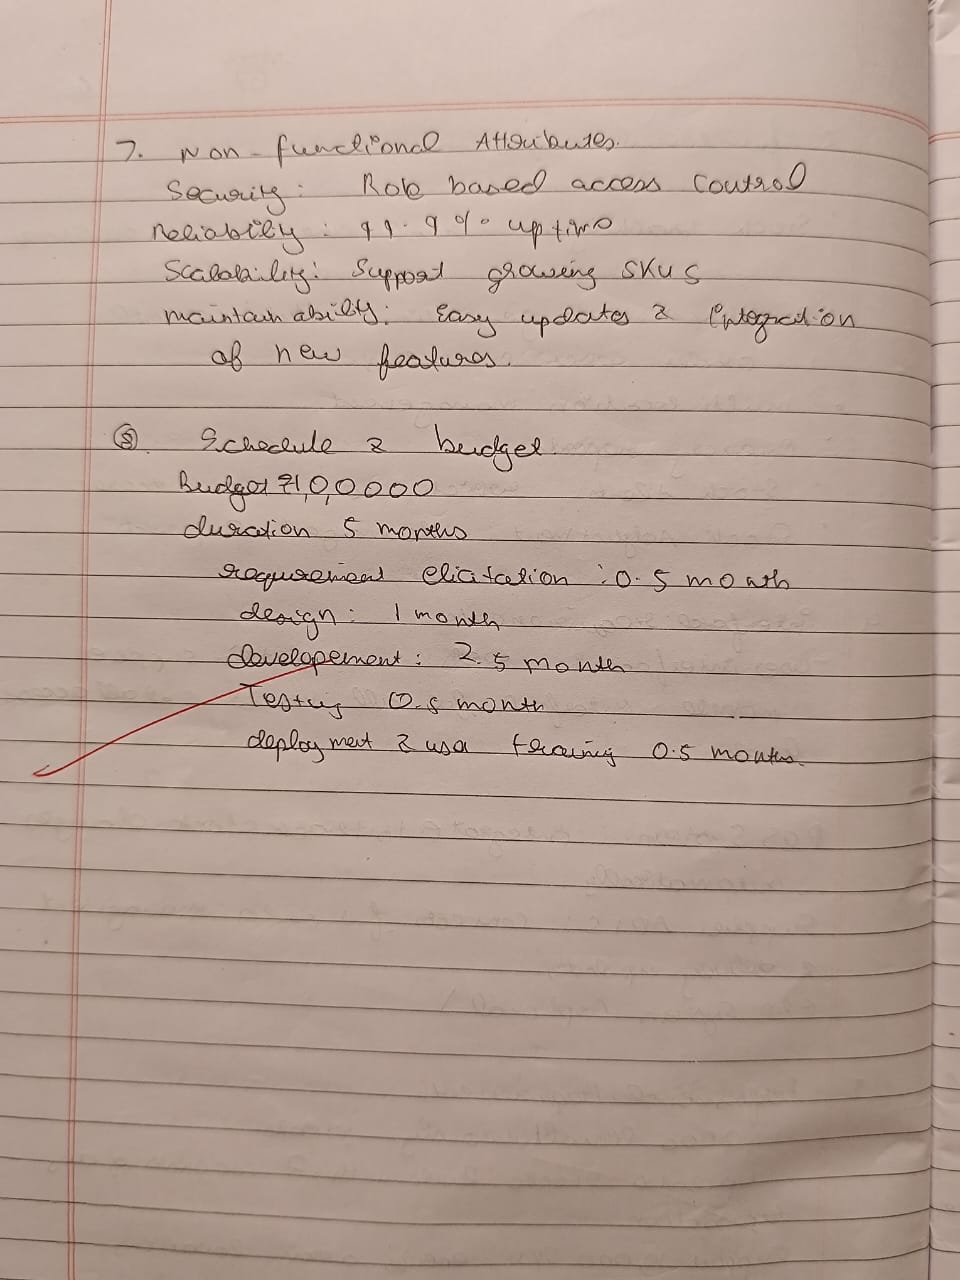 7. Non-functional Attributes.
Security: Role based access control
Reliability: 99.9% uptime
Scalability: Support growing SKUs
maintainability: Easy updates & integration
of new features.
8. Schedule & budget.
Budget ₹1,0,0000
duration 5 months
requirement elicitation: 0.5 month
design: 1 month
developement: 2.5 month
Testing 0.5 month
deployment & user training 0.5 months.